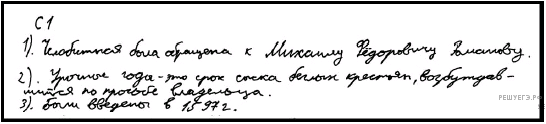 С1
1). Челобитная была обращена к Михаилу Фёдоровичу Романову.
2). Урочные года - это срок сыска беглых крестьян, возбуждав-
шийся по просьбе владельца.
3). Были введены в 1597 г.
РЕШУЕГЭ.РФ